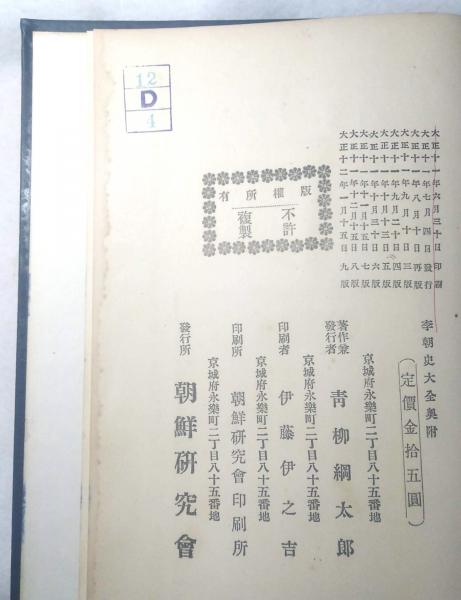 12
D
4
大正十一年六月三十日印刷
大正十一年七月四日發行
大正十一年八月十日再版
大正十一年九月十日三版
大正十一年九月二十日四版
大正十一年十月十三日五版
大正十一年十月三十日六版
大正十一年十二月十五日七版
大正十一年十二月十五日八版
大正十二年一月十五日九版
版權所有
不許
複製
李朝史大全奧附
定價金拾五圓
京城府永樂町二丁目八十五番地
著作兼
發行者
青柳綱太郎
京城府永樂町二丁目八十五番地
印刷者 伊藤伊之吉
京城府永樂町二丁目八十五番地
印刷所 朝鮮研究會印刷所
京城府永樂町二丁目八十五番地
發行所 朝鮮研究會